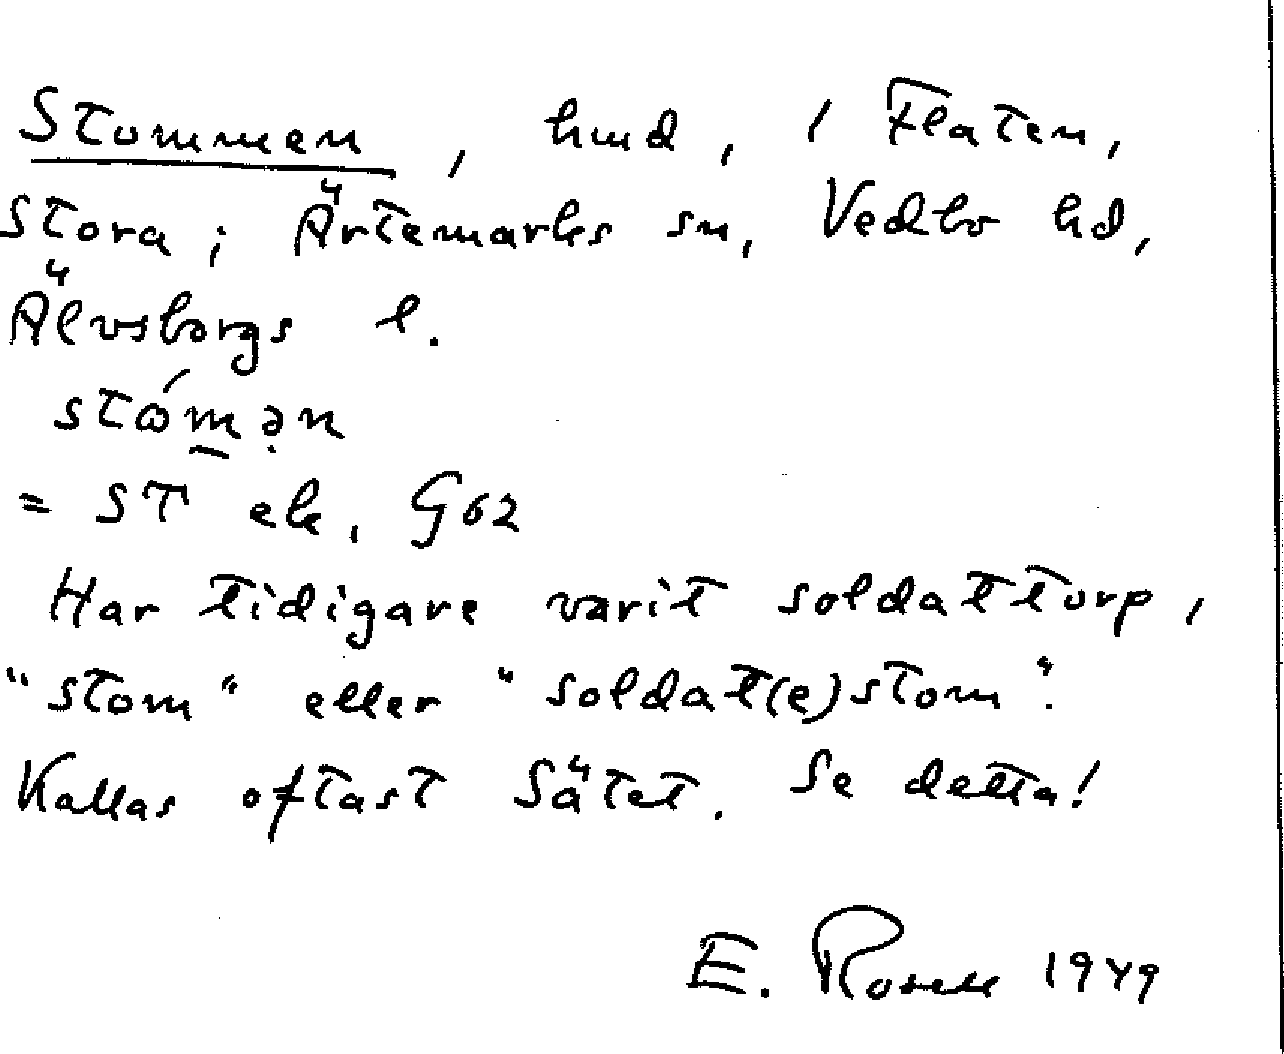 Stommen, hmd, / Flaten,
Stora; Ärtemarks sn, Vedbo hd,
Älvsborgs l.
stώm̲ə̣n
= ST ek. G62
Har tidigare varit soldattorp,
"stom" eller "soldat(e)stom".
Kallas oftast Sätet. Se detta!
E. Rosell 1949